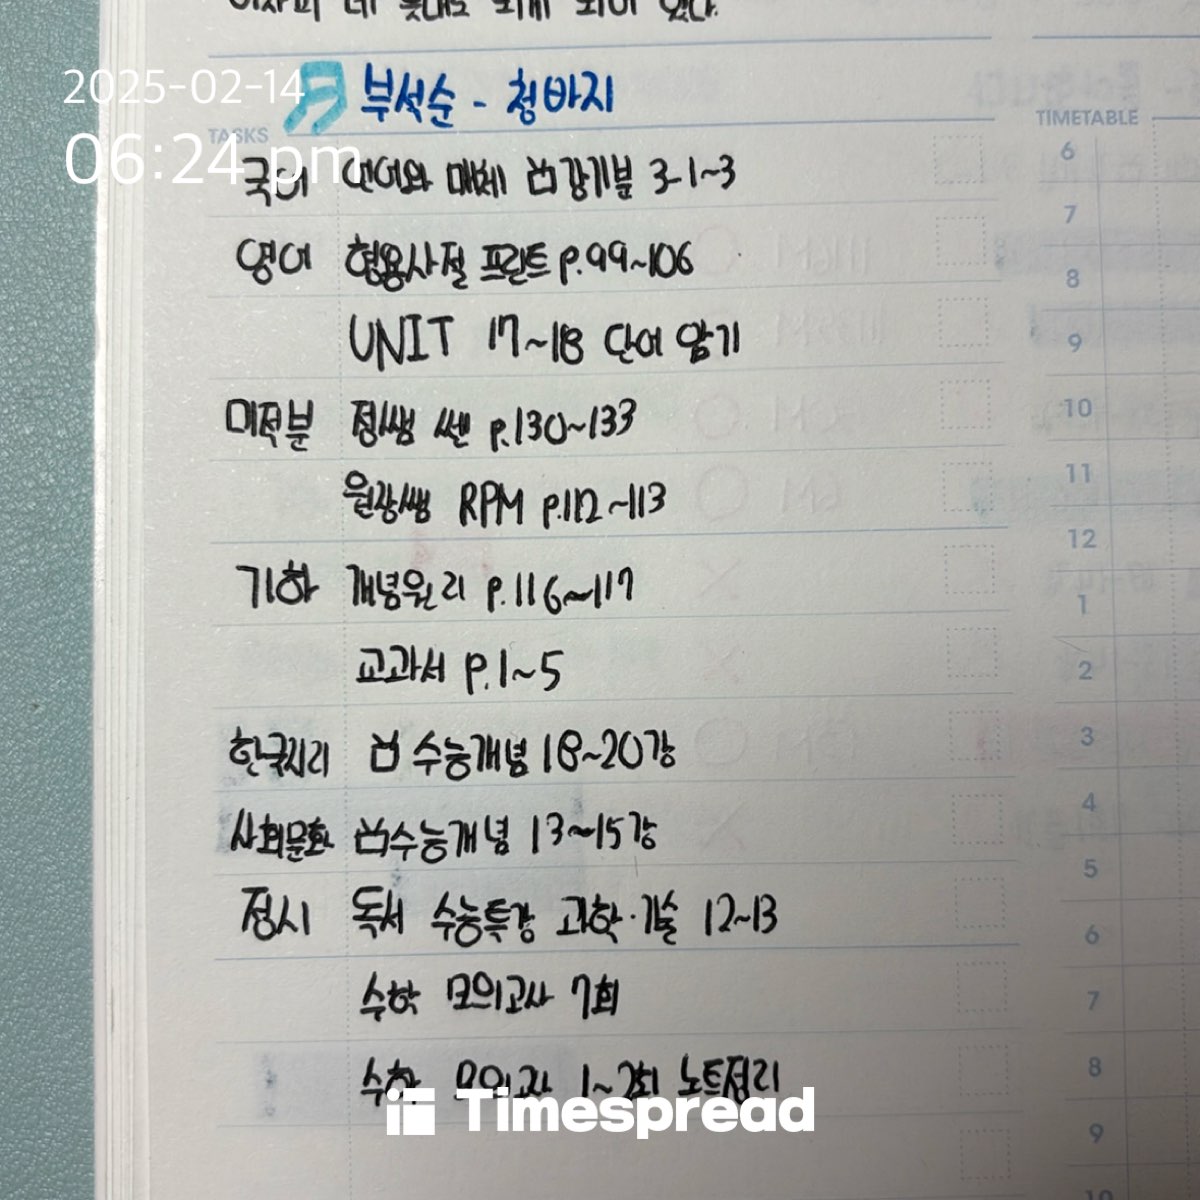 2025-02-14
06:24 pm
부석순 - 청바지
TASKS
TIMETABLE
국어 언어와 매체 강기분 3-1~3
영어 형용사절 프린트 p.99~106
UNIT 17~18 단어 암기
미적분 정쌤 쎈 p.130~133
원장쌤 RPM p.112~113
기하 개념원리 p.116~117
교과서 p.1~5
한국지리 수능개념 18~20강
사회문화 수능개념 13~15강
정시 독서 수능특강 과학·기술 12~13
수학 모의고사 7회
수학 모의고사 1~2회 노트정리
6
7
8
9
10
11
12
1
2
3
4
5
6
7
8
9
10
Timespread